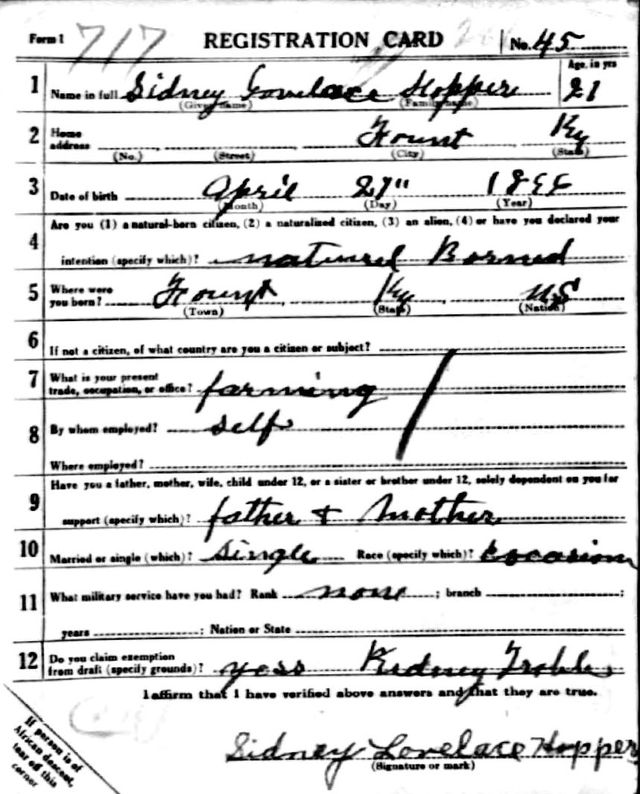 Form 1 717 REGISTRATION CARD No. 45
1 Name in full Sidney Lovelace Hopper Age, in yrs 21
(Given name) (Family name)
2 Home address Fount Ky
(No.) (Street) (City) (State)
3 Date of birth April 27"
(Month) (Day) (Year)
4 Are you (1) a natural-born citizen, (2) a naturalized citizen, (3) an alien, (4) or have you declared your
intention (specify which)? natural Borned
5 Where were you born? Fount Ky US
(Town) (State) (Nation)
6 If not a citizen, of what country are you a citizen or subject?
7 What is your present trade, occupation, or office? farming
8 By whom employed? self
Where employed?
9 Have you a father, mother, wife, child under 12, or a sister or brother under 12, solely dependent on you for
support (specify which)? father + Mother
10 Married or single (which)? Single Race (specify which)?
11 What military service have you had? Rank none ; branch ;
years ; Nation or State
12 Do you claim exemption from draft (specify grounds)? yess Kidney
I affirm that I have verified above answers and that they are true.
If person is of
African descent,
tear off this
corner
Sidney Lovelace Hopper
(Signature or mark)